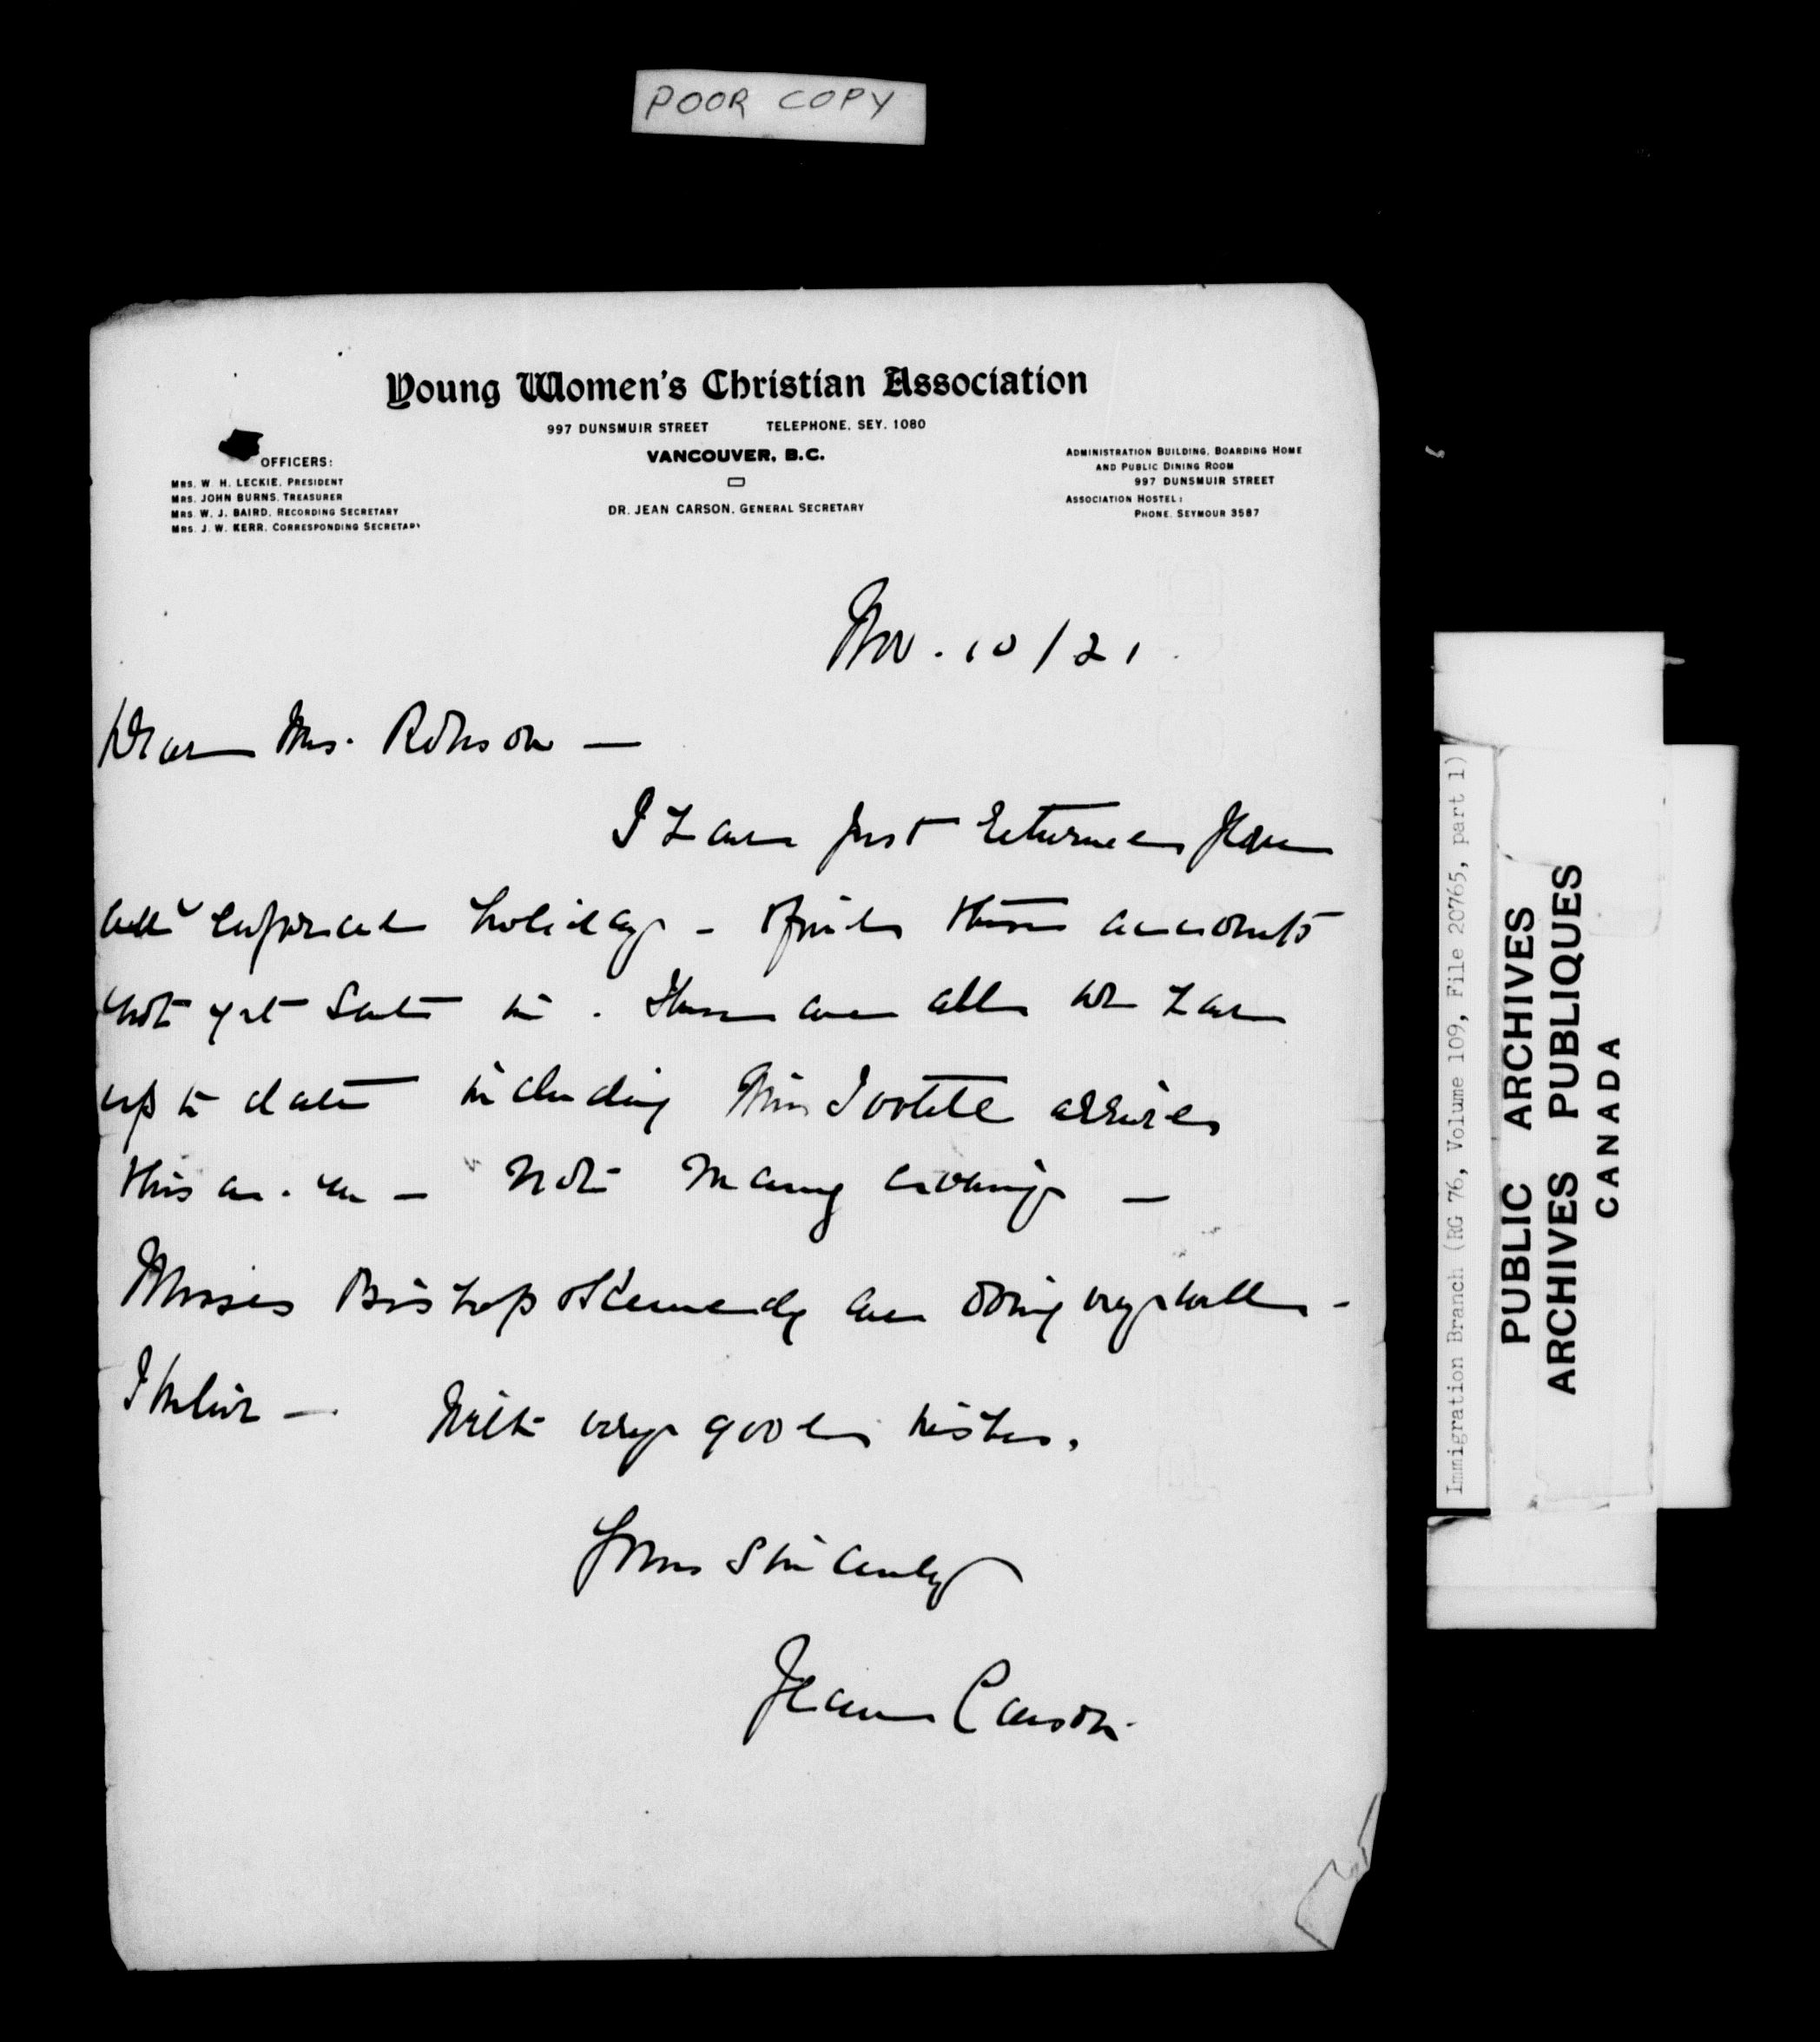 POOR COPY
Young Women's Christian Association
997 DUNSMUIR STREET TELEPHONE, SEY. 1080
VANCOUVER, B.C.
OFFICERS:
MRS. W. H. LECKIE, PRESIDENT
MRS. JOHN BURNS, TREASURER
MRS. W. J. BAIRD, RECORDING SECRETARY
MRS. J. W. KERR, CORRESPONDING SECRETARY
DR. JEAN CARSON, GENERAL SECRETARY
ADMINISTRATION BUILDING, BOARDING HOME
AND PUBLIC DINING ROOM
997 DUNSMUIR STREET
ASSOCIATION HOSTEL:
PHONE, SEYMOUR 3587
Nov. 10/21.
Dear Mrs. Robson —
I have just returned from
holiday - & find these accounts
not yet sent in. These are all we have
up to date including Miss arrived
this a.m — Not many coming —
Misses Bishop & Kennedy are doing very well -
I believe —. With very good wishes.
Yours Sincerely
Jean Carson.
Immigration Branch (RG 76, Volume 109, File 20765, part 1)
PUBLIC ARCHIVES
ARCHIVES PUBLIQUES
CANADA